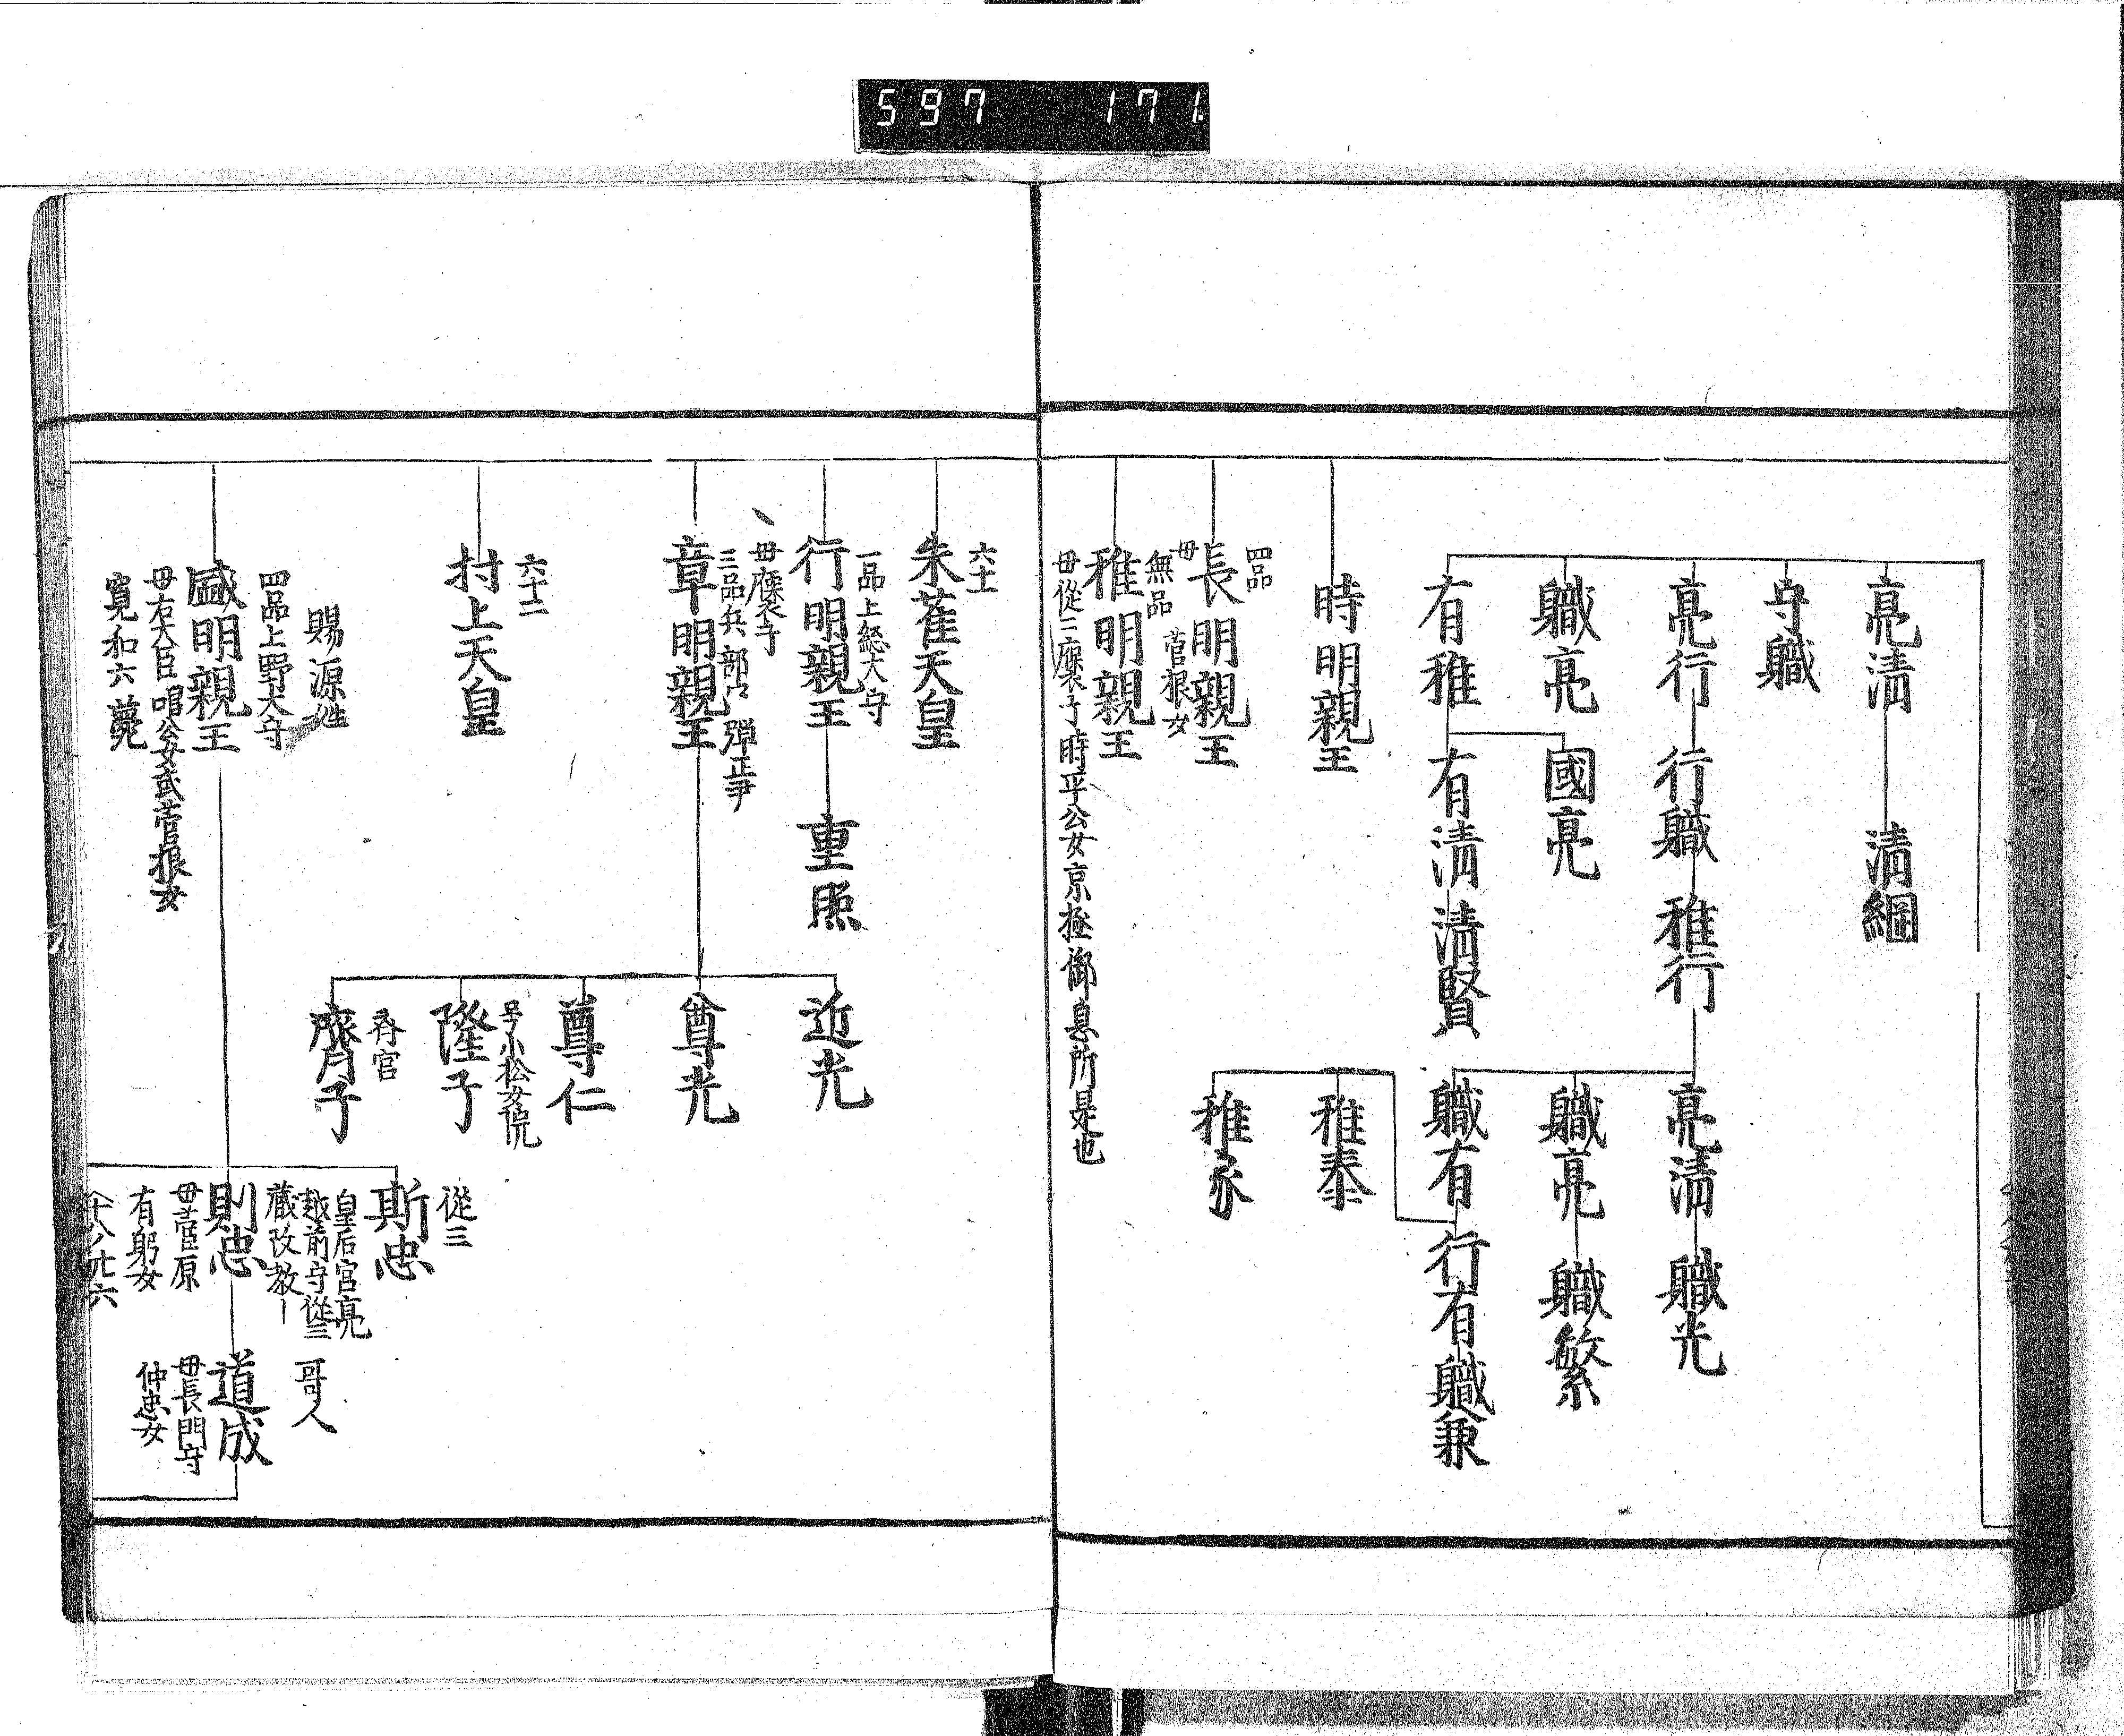 597 171
亮淸
淸綱
守職
亮行
行職
雅行
亮淸
職光
職亮
國亮
職亮
職繁
有雅
有淸
淸賢
職有
行有
職兼
雅泰
時明親王
四品
長明親王
母
菅根女
雅家
無品
雅明親王
母從三襃子時平公女京極御息所是也
六十一
朱雀天皇
一品上総大守
行明親王
母襃子
重熙
三品兵部卿 彈正尹
章明親王
近光
尊光
尊仁
号小松女院
隆子
斉宮
齊子
六十二
村上天皇
賜源姓
四品上野大守
盛明親王
母右大臣唱公女或菅根女
寛和六薨
從三
斯忠
皇后宮亮
越前守從三
蔵改教一
則忠
母菅原
有躬女
哥人
道成
母長門守
仲忠女